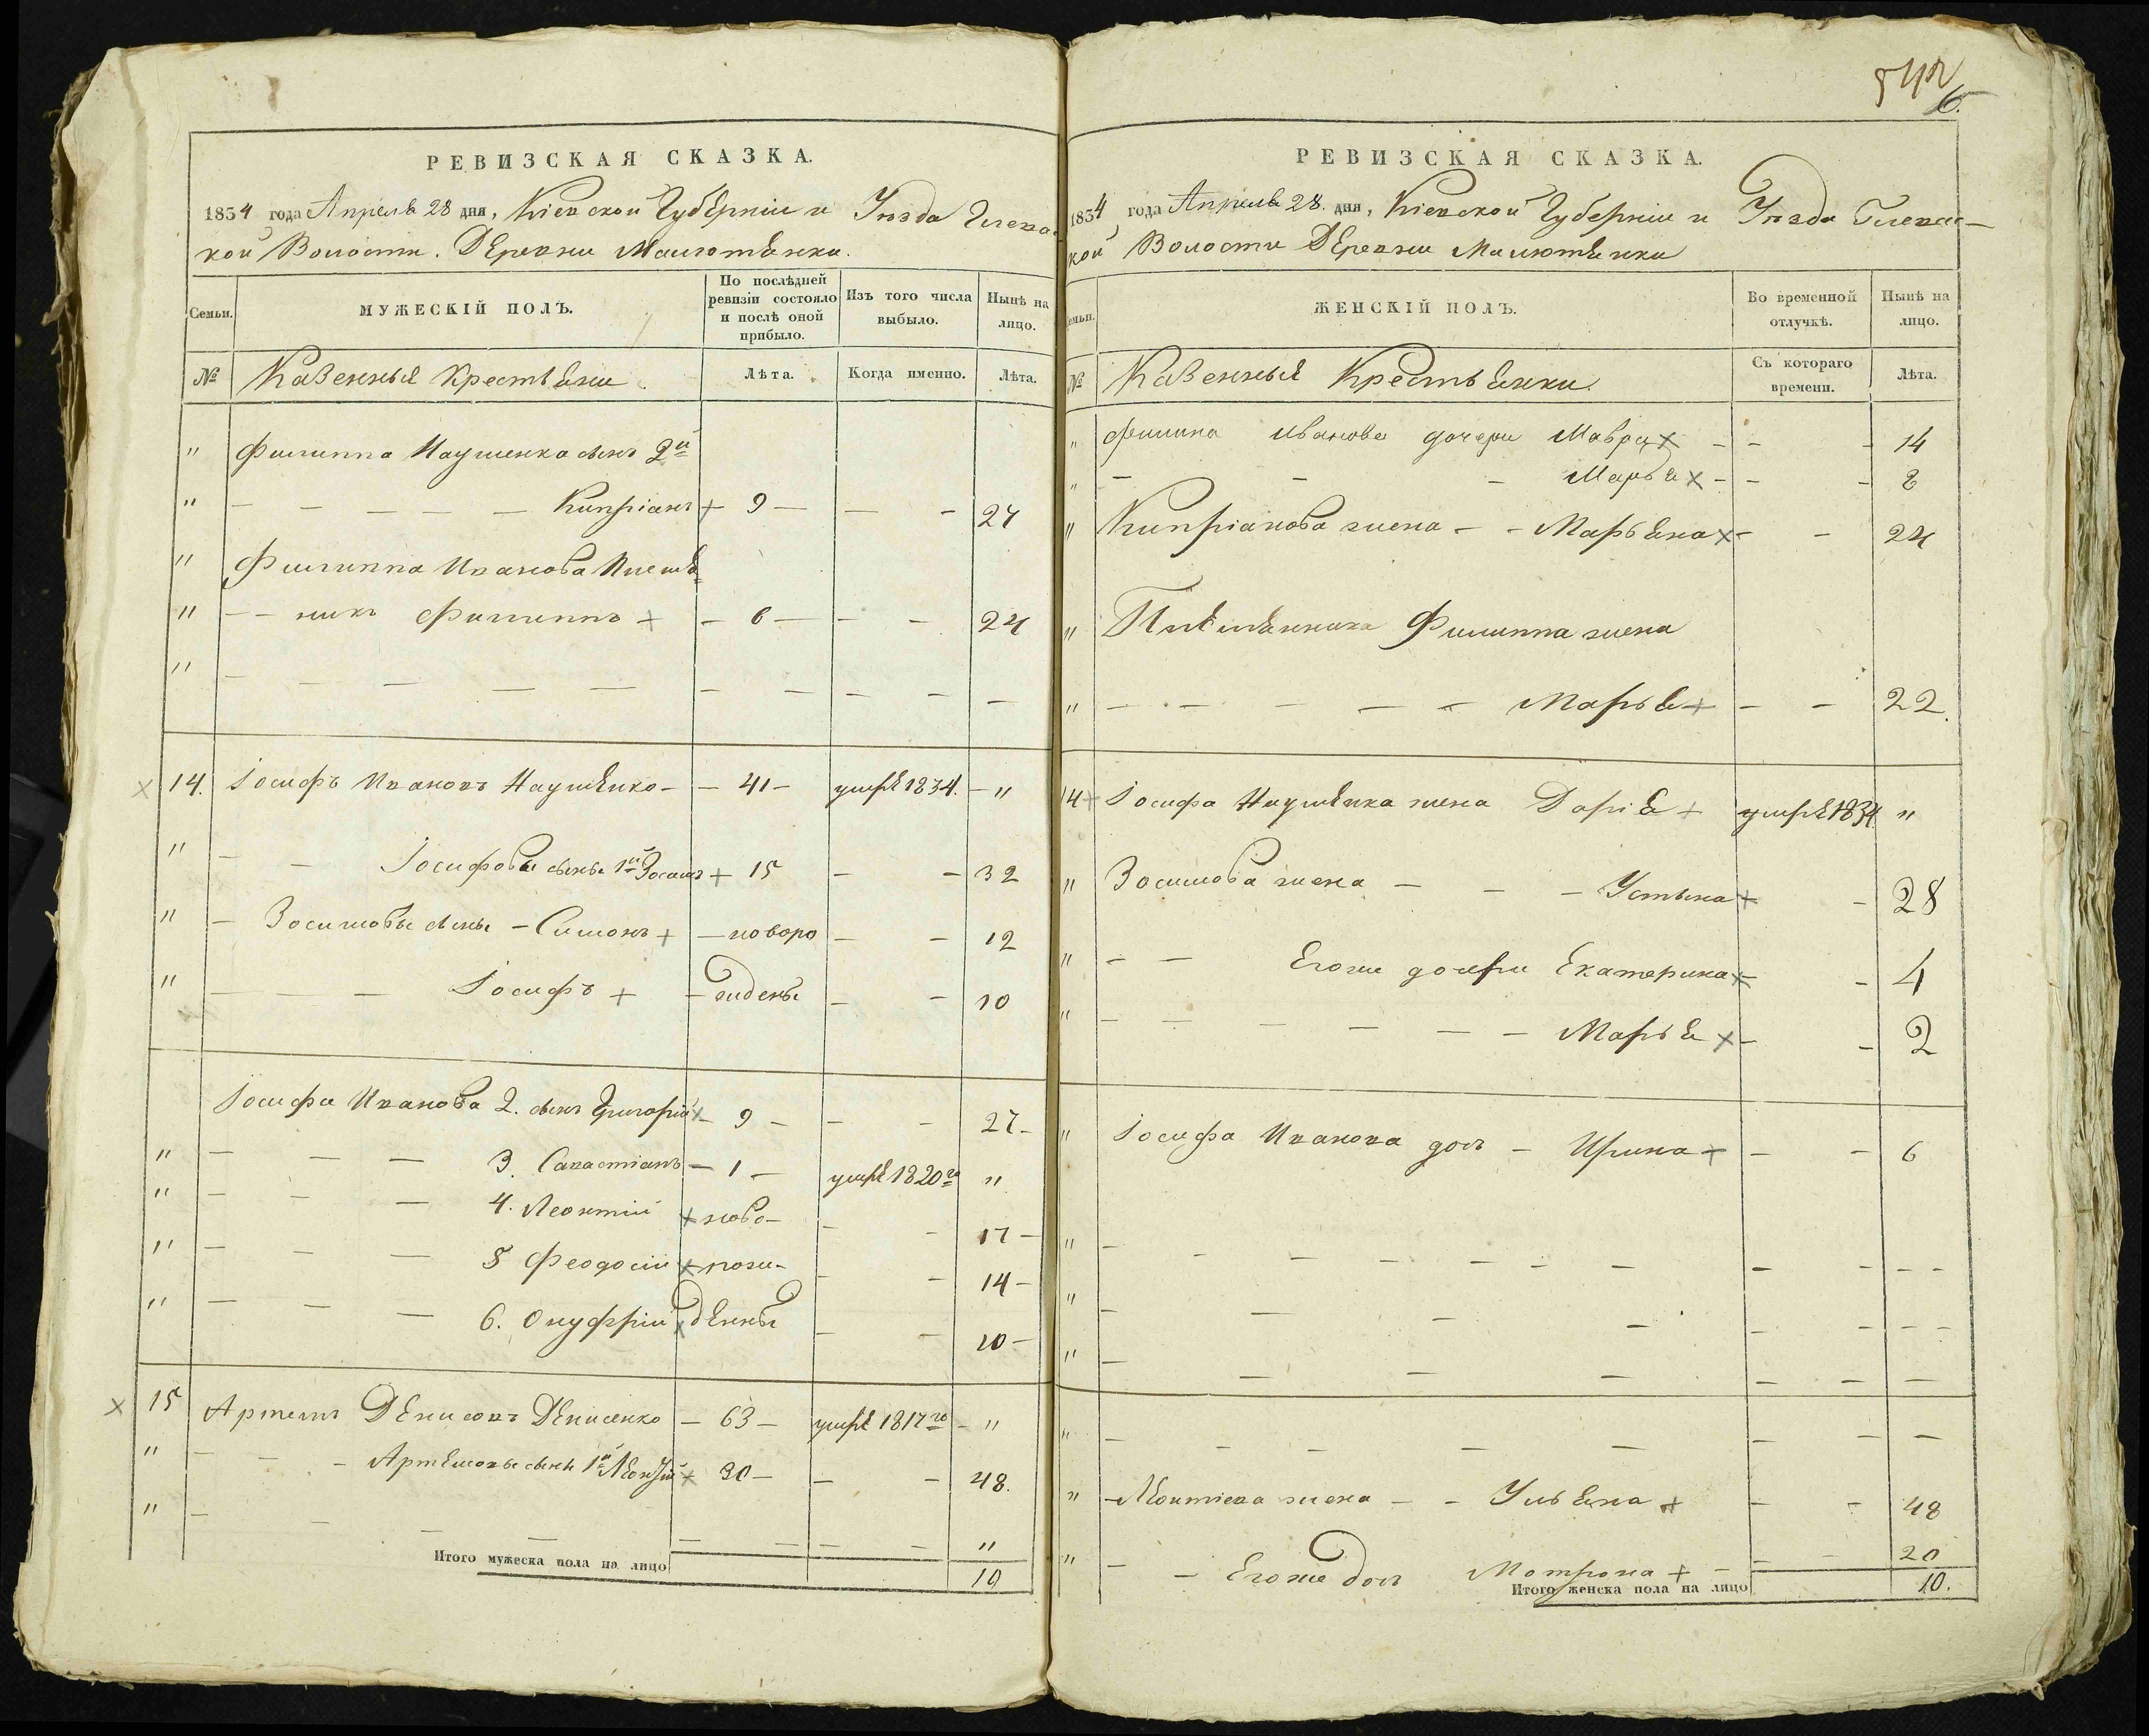 542
6.
РЕВИЗСКАЯ СКАЗКА.
1834 года Апреля 28 дня, Кіевской Губерніи и Уезда Глевах
кой Волости. Деревни Малютянки.
Семьи.
МУЖЕСКІЙ ПОЛЪ.
По послѣдней ревизіи состояло и послѣ оной прибыло.
Изъ того числа выбыло.
Нынѣ на лицо.
№ Казенные крестьяни. Лѣта. Когда именно. Лѣта.
" Филиппа Науменка сынъ 2й
" — — — — — Кипріянъ + 9 — — - 27
" Филиппа Иванова Племя=
" — — никъ Филиппъ + - 6 — — - 24
" — — — — — — — — — —
14. Іосифъ Ивановъ Науменко — - 41 - умре 1834. - "
" — — Іосифовы сыны 1й Зосимъ + 15 — - 32
" — Зосимовы сыны - Симонъ + — новоро — - 12
" — — — Іосифъ + - жденны — - 10
Іосифа Иванова 2. сынъ Григорій x 9 - — - 27-
" — — — 3. Савастіянъ - 1 - умре 1820го "
" — — — 4. Леонтій x ново- — - 17 -
" — — — 5 Феодосій x рож- — - 14 -
" — — — 6. Онуфрій x денны — - 10 -
x 15 Артемъ Денисовъ Денисенко - 63 - умре 1817го - "
" — — - Артемовы сыны 1й Леонтій x 30 - — - 48.
" — — — — — — — - "
Итого мужеска пола на лицо 10
РЕВИЗСКАЯ СКАЗКА.
1834 года Апреля 28. дня, Кіевской Губерніи и Уезда Глевах—
кой Волости Деревни Малютянки
Семьи.
ЖЕНСКІЙ ПОЛЪ.
Во временной отлучкѣ.
Нынѣ на лицо.
№ Казенные Крестьянки. Съ котораго времени. Лѣта.
" Филипа Иванова дочери Мавра x - - - 14
" — — — Марья x - - - 2
" Кипріянова жена - - Марьяна x - - 24
" Племянника Филиппа жена
" — — — — — Марья + - - 22.
14 + Іосифа Науменка жена Дарія + умре 1834 "
" Зосимова жена — - - Устына + - 28
" — — Егоже дочери Екатерина x - 4
" — — — — — - Марья x - - 2
" Іосифа Иванова дочь - Ирина + - - 6
" — — — — — — — — — —
" — — — — — — — —
" — — — — — — —
" — — — — — — — —
" - Леонтіева жена - - Ульяна + - - 48
" — - Егоже дочь Мотрона + - - - 20
Итого женска пола на лицо 10.